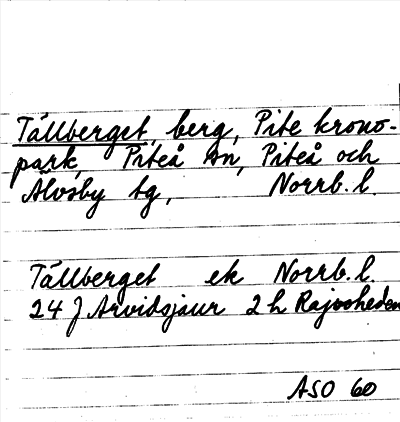 Tállberget, berg, Pite krono-
park, Piteå sn, Piteå och
Älvsby tg, Norrb. l.
Tállberget ek Norrb. l.
24 J Arvidsjaur 2 h Rajvoheden
ASO 60